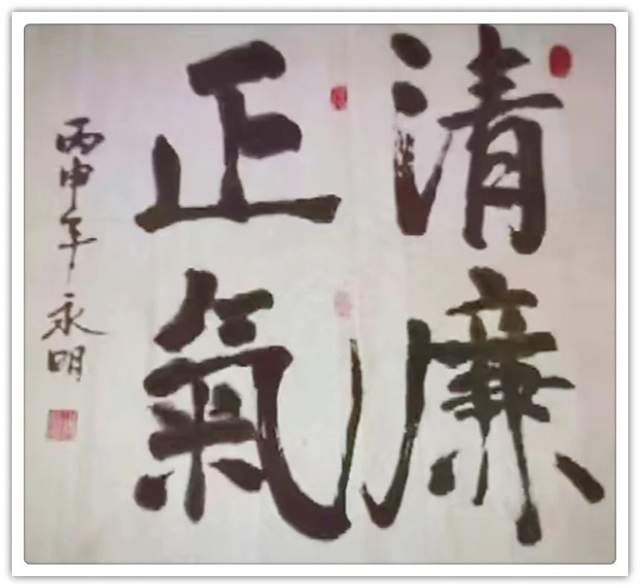 清廉
正氣
丙申年永明